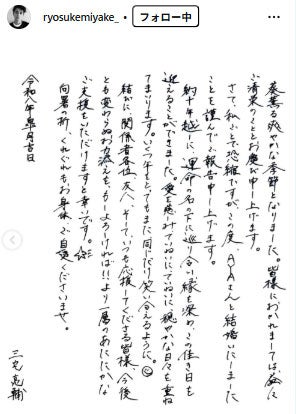 ryosukemiyake_ • フォロー中
葵薫る爽やかな季節となりました。皆様におかれましては、益々
ご清栄のこととお慶び申し上げます。
さて、私ごとで恐縮ですが、この度、AIAさんと結婚いたしました
ことを謹んでご報告申し上げます。
約十年越しに運命の名の下に巡り合い、縁を深め、この佳き日を
迎えることができました。愛を惑みていねいにていねいに、穏やかな日々を重ね
てまいります。いくつになってもまた同じだけ笑い合えるように。
結びに関係者各位、友人、そして、いつも応援してくださる皆様、今後
とも変わらぬお力添えを、もしよろしければ!!より一層のあたたかな
ご支援をいただけますと幸いです。
向暑の折、くれぐれもお身体ご自愛くださいませ。
令和八年皐月吉日
三宅亮輔